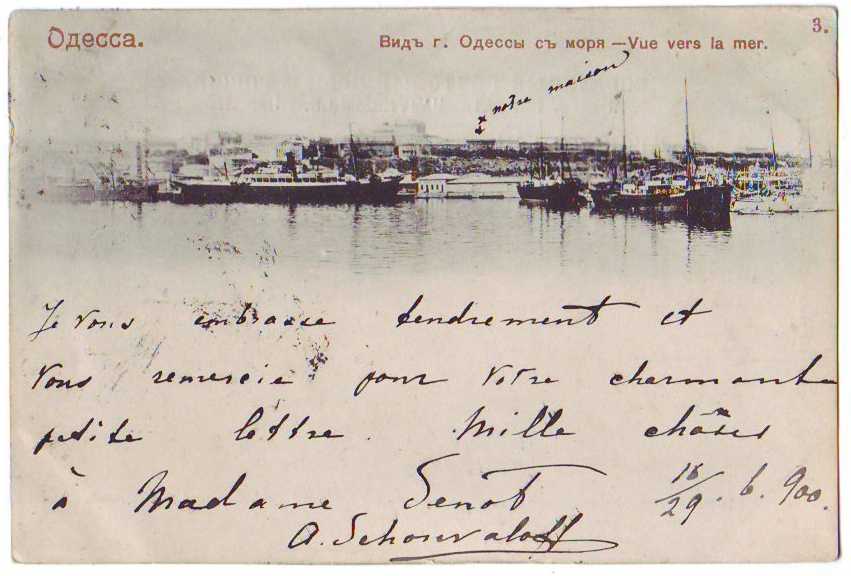 Одесса.
Видъ г. Одессы съ моря —Vue vers la mer.
3.
x notre maison
Je vous embrasse tendrement et
vous remercie pour votre charmante
petite lettre. Mille chôses
à Madame Senot
16/29. 6. 900.
A. Schouvaloff